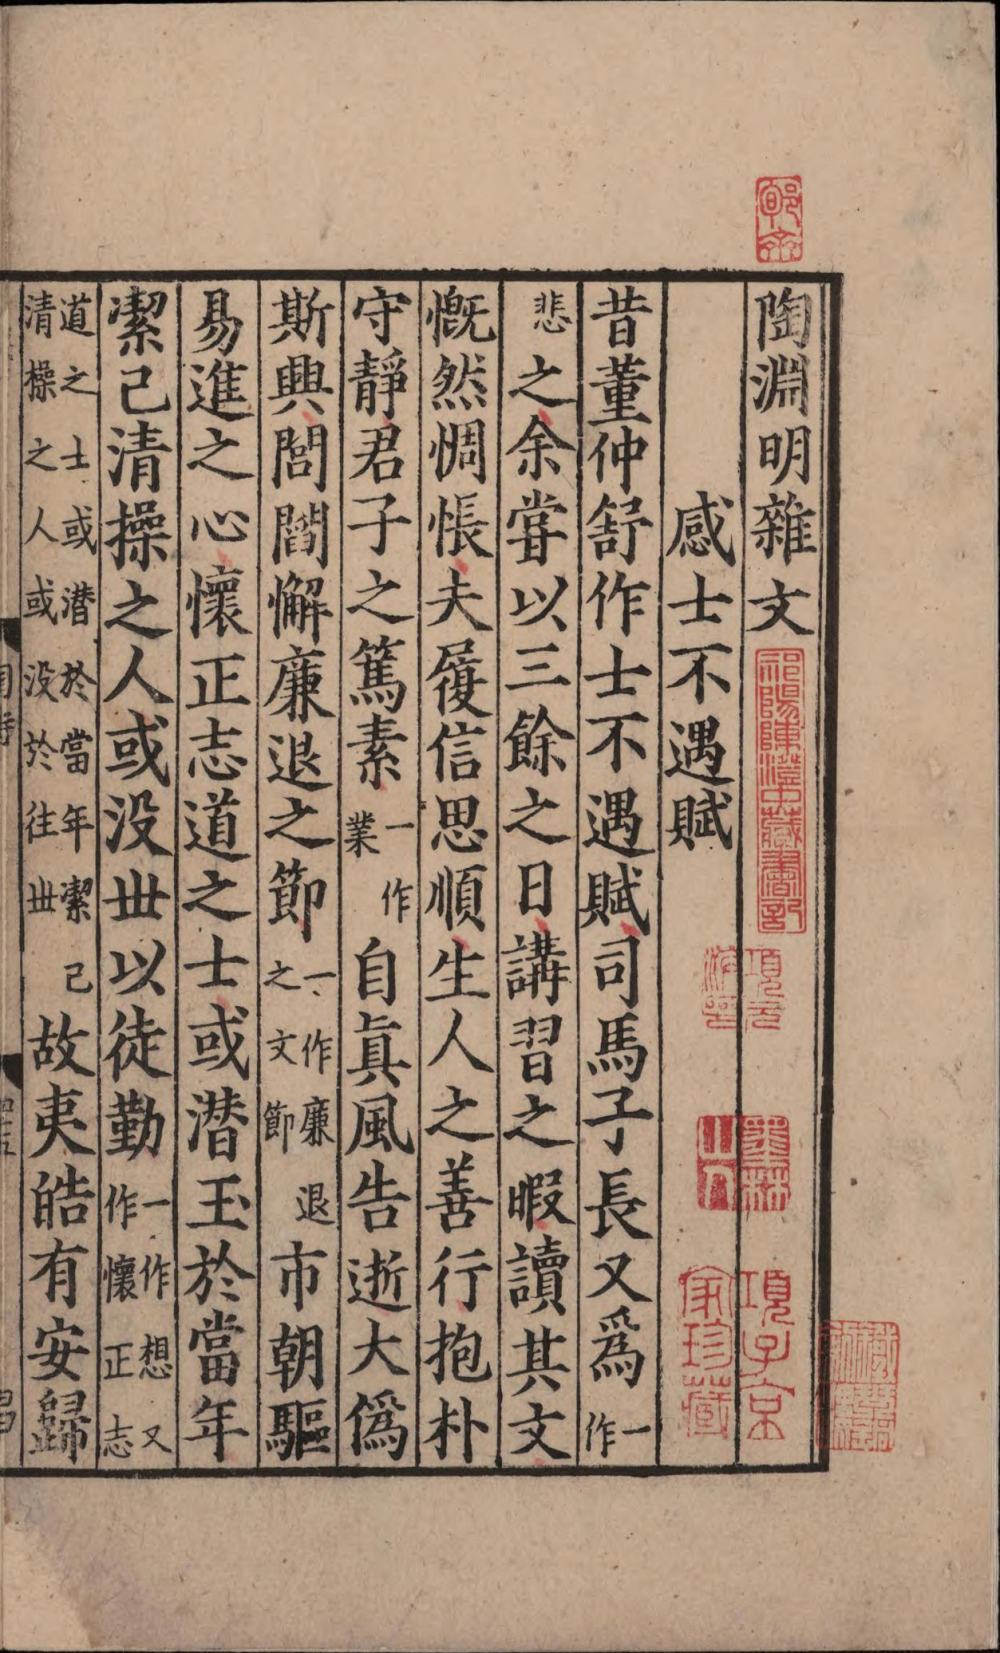 陶淵明雜文
感士不遇賦
昔董仲舒作士不遇賦司馬子長又爲一作
悲之余嘗以三餘之日講習之暇讀其文
慨然惆悵夫履信思順生人之善行抱朴
守靜君子之篤素一作業自眞風告逝大僞
斯興閭閻懈廉退之節一作廉退之文節市朝驅
易進之心懷正志道之士或潜玉於當年
潔己清操之人或没丗以徒勤一作想又作懷正志
道之士或潜於當年潔己清操之人或没於往丗故夷皓有安歸
郇齋
祁陽陳澄中藏書記
項元汴印
墨林山人
項子京家珍藏